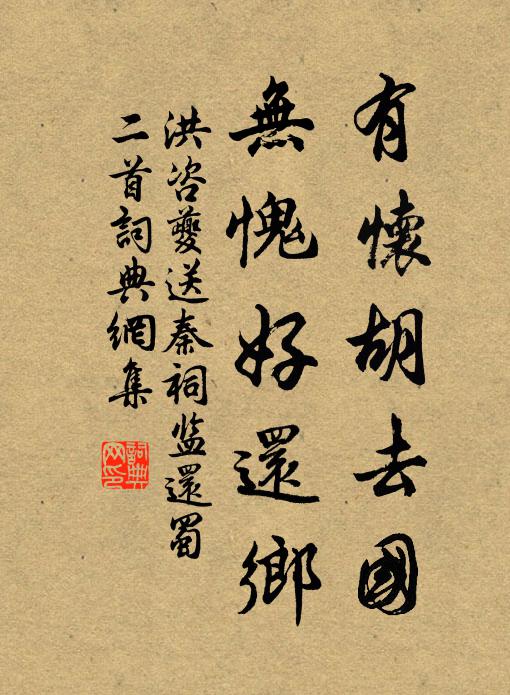 有懷胡去國
無愧好還鄉
洪咨夔送秦祠监還蜀
二首詞典網集
詞典
网印